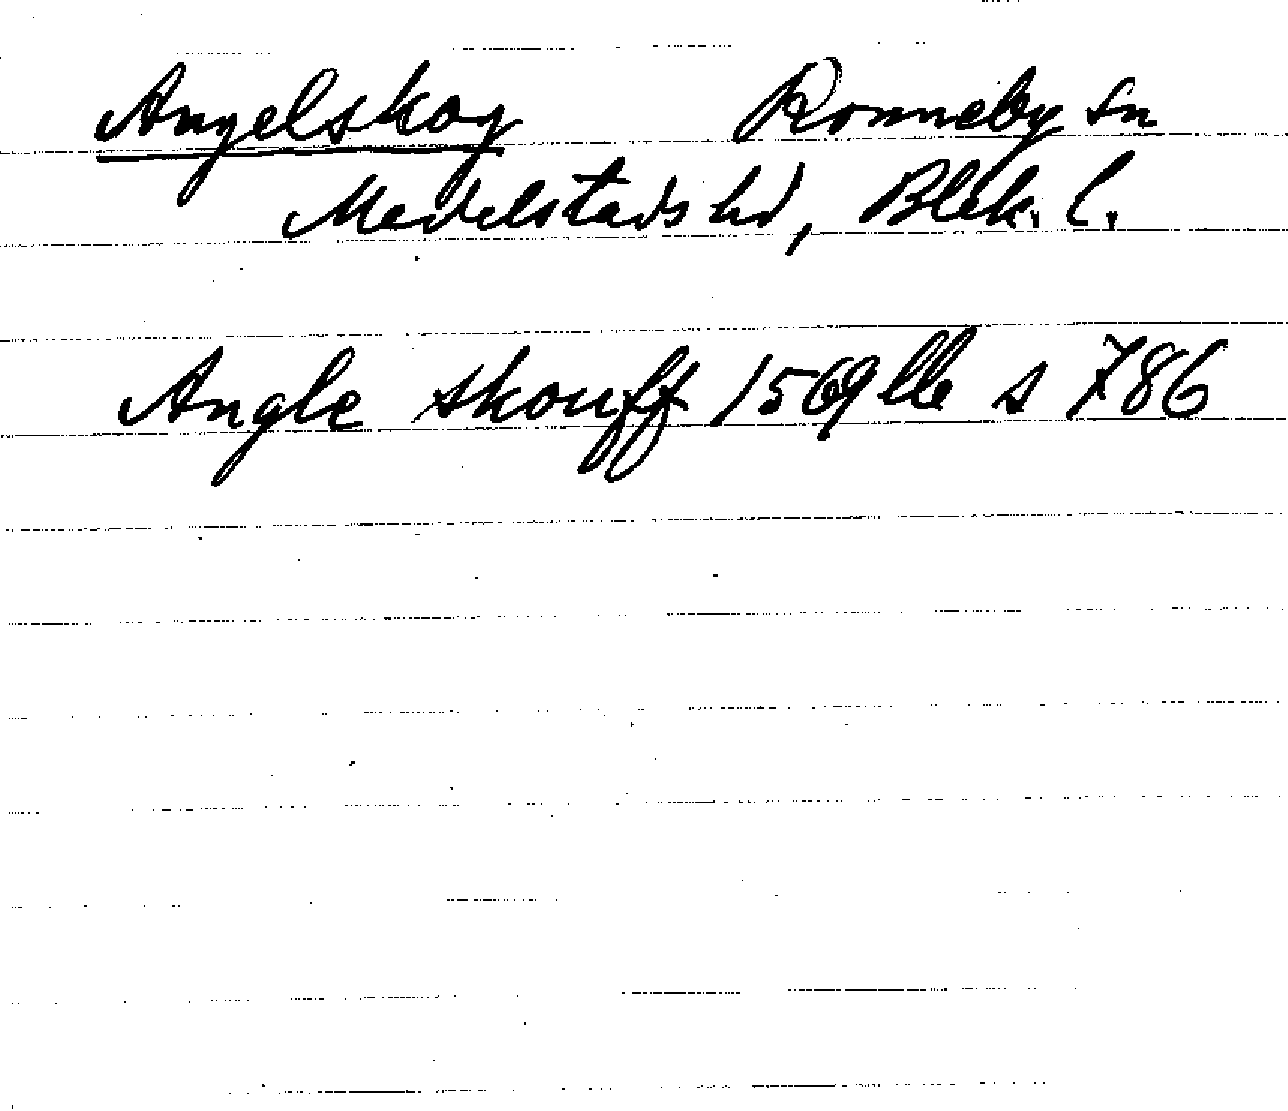 Angelskog Ronneby sn
Medelstads hd, Blek. l.
Angle skouff 1569 llb s 786